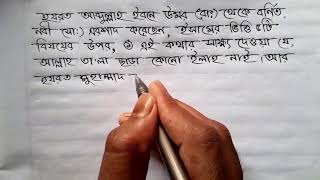 হযরত আব্দুল্লাহ ইবনে উমর (রাঃ) থেকে বর্ণিত,
নবী (সাঃ) এরশাদ করেছেন, ইসলামের ভিত্তি ৫টি
বিষয়ের উপর, ① এই কথার সাক্ষ্য দেওয়া যে,
আল্লাহ তা'লা ছাড়া কোনো ইলাহ নাই। আর
হযরত মুহাম্মাদ